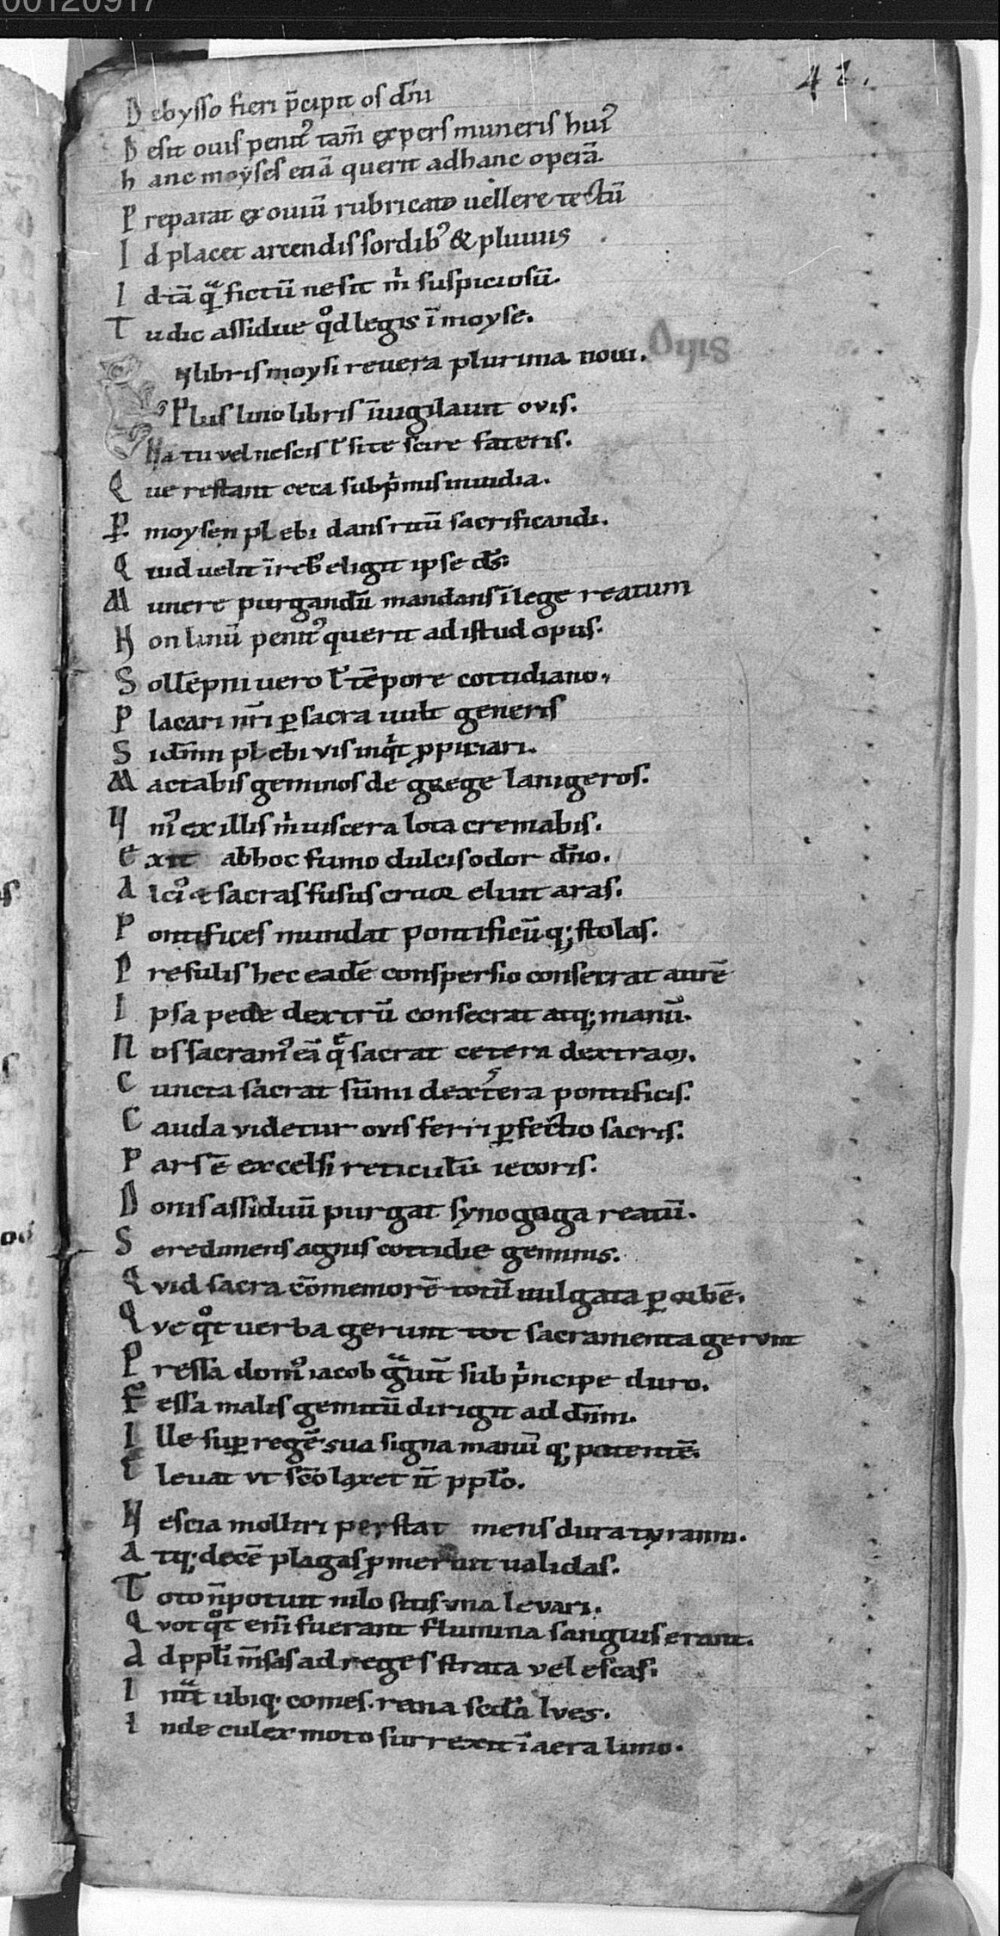 00120917
42.
D ebysso fieri p̄cipit os dn̄i
D esit ouis penit᷒ tam̄ expers muneris hui᷒
h anc moyses etiā querit ad hanc operā.
P reparat ex ouiū rubricato uellere tectū
I d placet arcendis sordib᷒ & pluuiis
I d tā quā fictū ne sit m̄ suspiciosū.
T u dic assidue qͦd legis ī moyse.
In libris moysi reuera plurima noui. Ouis
Plus lino libris īuigilauit ovis.
Na tu vel nescis ł si te scire fateris.
Q ue restant ceca subp̄mis inuidia.
P̱ moysen plebi dans ritū sacrificandi.
Q uid uelit ī reb᷒ eligit ipse ds̄.
M unere purgandū mandans ī lege reatum
N on linū penit᷒ querit ad istud opus.
S ollēpni uero ł tēpore cottidiano.
P lacari nr̄i ꝑ sacra uult generis
S i dn̄m plebi vis inqͥt ꝓpiciari.
M actabis geminos de grege lanigeros.
H ui᷒ ex illis m̄ uiscera lota cremabis.
E xit ab hoc fumo dulcis odor dn̄o.
A lci᷒ & sacras fusus cruor eluit aras.
P ontifices mundat pontificūq; stolas.
P resulis hec eadē conspersio consecrat aurē
I psa pede dextrū consecrat atq; manū.
N os sacram᷒ eā q̄ sacrat cetera dextrāꝫ.
C uncta sacrat sūmi dextera pontificis.
C auda videtur ovis ferri ꝑfectio sacris.
P ars ē excelsi reticulū iecoris.
D onis assiduū purgat synogaga reatū.
S e redimens agnis cottidie geminis.
Q vid sacra cōmemorē totū uulgata ꝑ orbē.
Q ve qͦt uerba gerunt tot sacramenta gervnt
P ressa dom᷒ iacob gͣuit̄ sub pͥncipe duro.
F essa malis gemitū dirigit ad dn̄m.
I lle suꝑ regē sua signa manūq; potentē.
E leuat vt sc̄o laxet it̄ pplo.
N escia molliri perstat mens dura tyranni.
A tq; decē plagas ꝓmeruit ualidas.
T oto n̄ potuit nilo sitis vna levari.
Q vot qͦt em̄ fuerant flumina sanguis erant.
A d ppli m̄sas ad reges strata vel escas.
I nͣt ubiq; comes. rana sc̄da lves.
I nde culex moto surrexit ī aera limo.